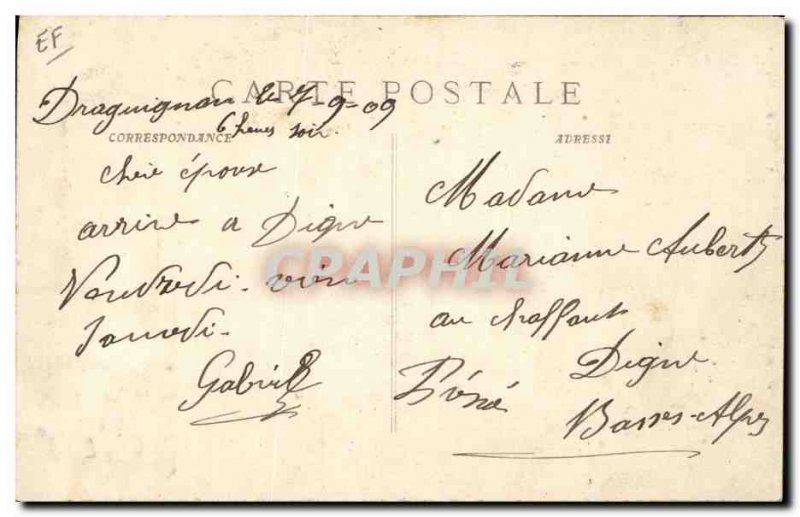 EF
CARTE POSTALE
Draguignan le 7-9-09
6 heures soir
CORRESPONDANCE
ADRESSE
chère épouse
arrive a Digne
Vendredi
Samedi
Gabriel
Madame
Marianne Aubert
au chaffaut
Digne
Basses-Alpes
CPAPHIL